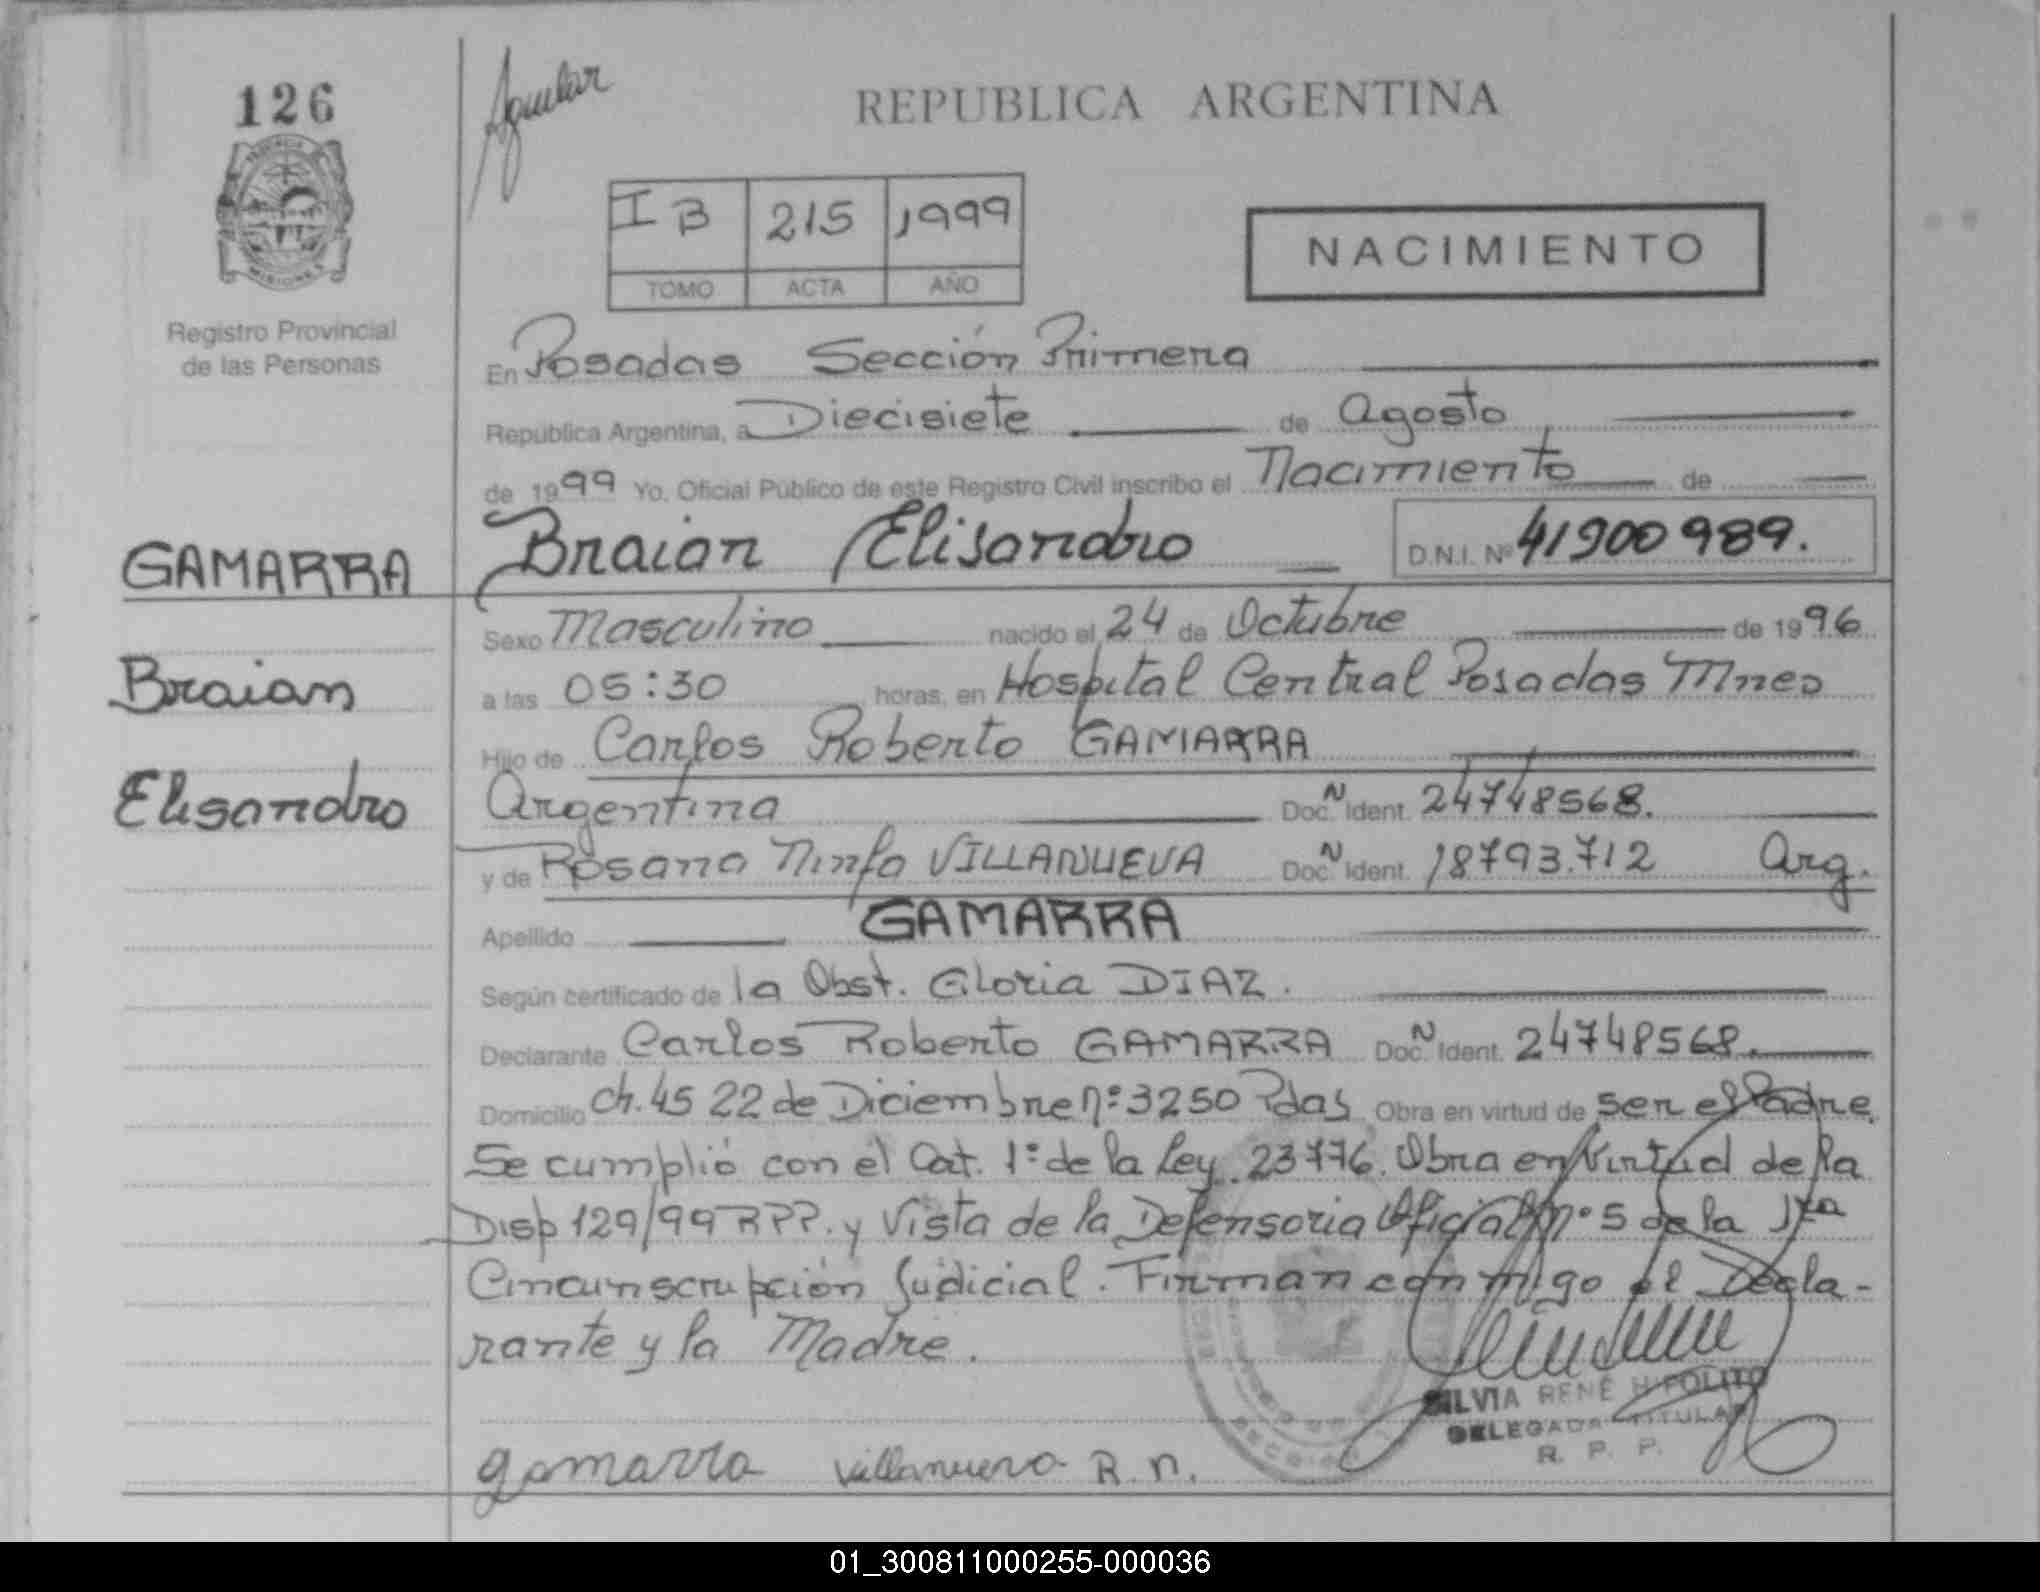 126
Aguilar
REPUBLICA ARGENTINA
PROVINCIA
MISIONES
Registro Provincial
de las Personas
I B 215 1999
TOMO ACTA AÑO
NACIMIENTO
En Posadas Sección Primera
República Argentina, a Diecisiete de Agosto
de 1999 Yo, Oficial Público de este Registro Civil inscribo el Nacimiento de
GAMARRA
Braian
Elisandro
Braian Elisandro D.N.I. Nº 41900989.
Sexo Masculino nacido el 24 de Octubre de 1996
a las 05:30 horas, en Hospital Central Posadas Mnes
Hijo de Carlos Roberto GAMARRA
Argentina Doc. Ñ Ident. 24748568.
y de Rosana Ninfa VILLANUEVA Doc. Ñ Ident. 18793.712 Arg.
Apellido GAMARRA
Según certificado de la Obst. Gloria DIAZ.
Declarante Carlos Roberto GAMARRA Doc. Ñ Ident. 24748568.
Domicilio Ch. 45 22 de Diciembre nº 3250 Pdas Obra en virtud de ser el Padre
Se cumplió con el Cat. 1º de la Ley 23776. Obra en Virtud de la
Disp 129/99 RPP. y Vista de la Defensoria Oficial nº 5 de la 1ra
Circunscrupción Judicial. Firman conmigo el Decla-
rante y la Madre.
SILVIA RENÉ HIPOLITO
DELEGADA TITULAR
R. P. P.
gamarra villanueva R. n.
01_300811000255-000036